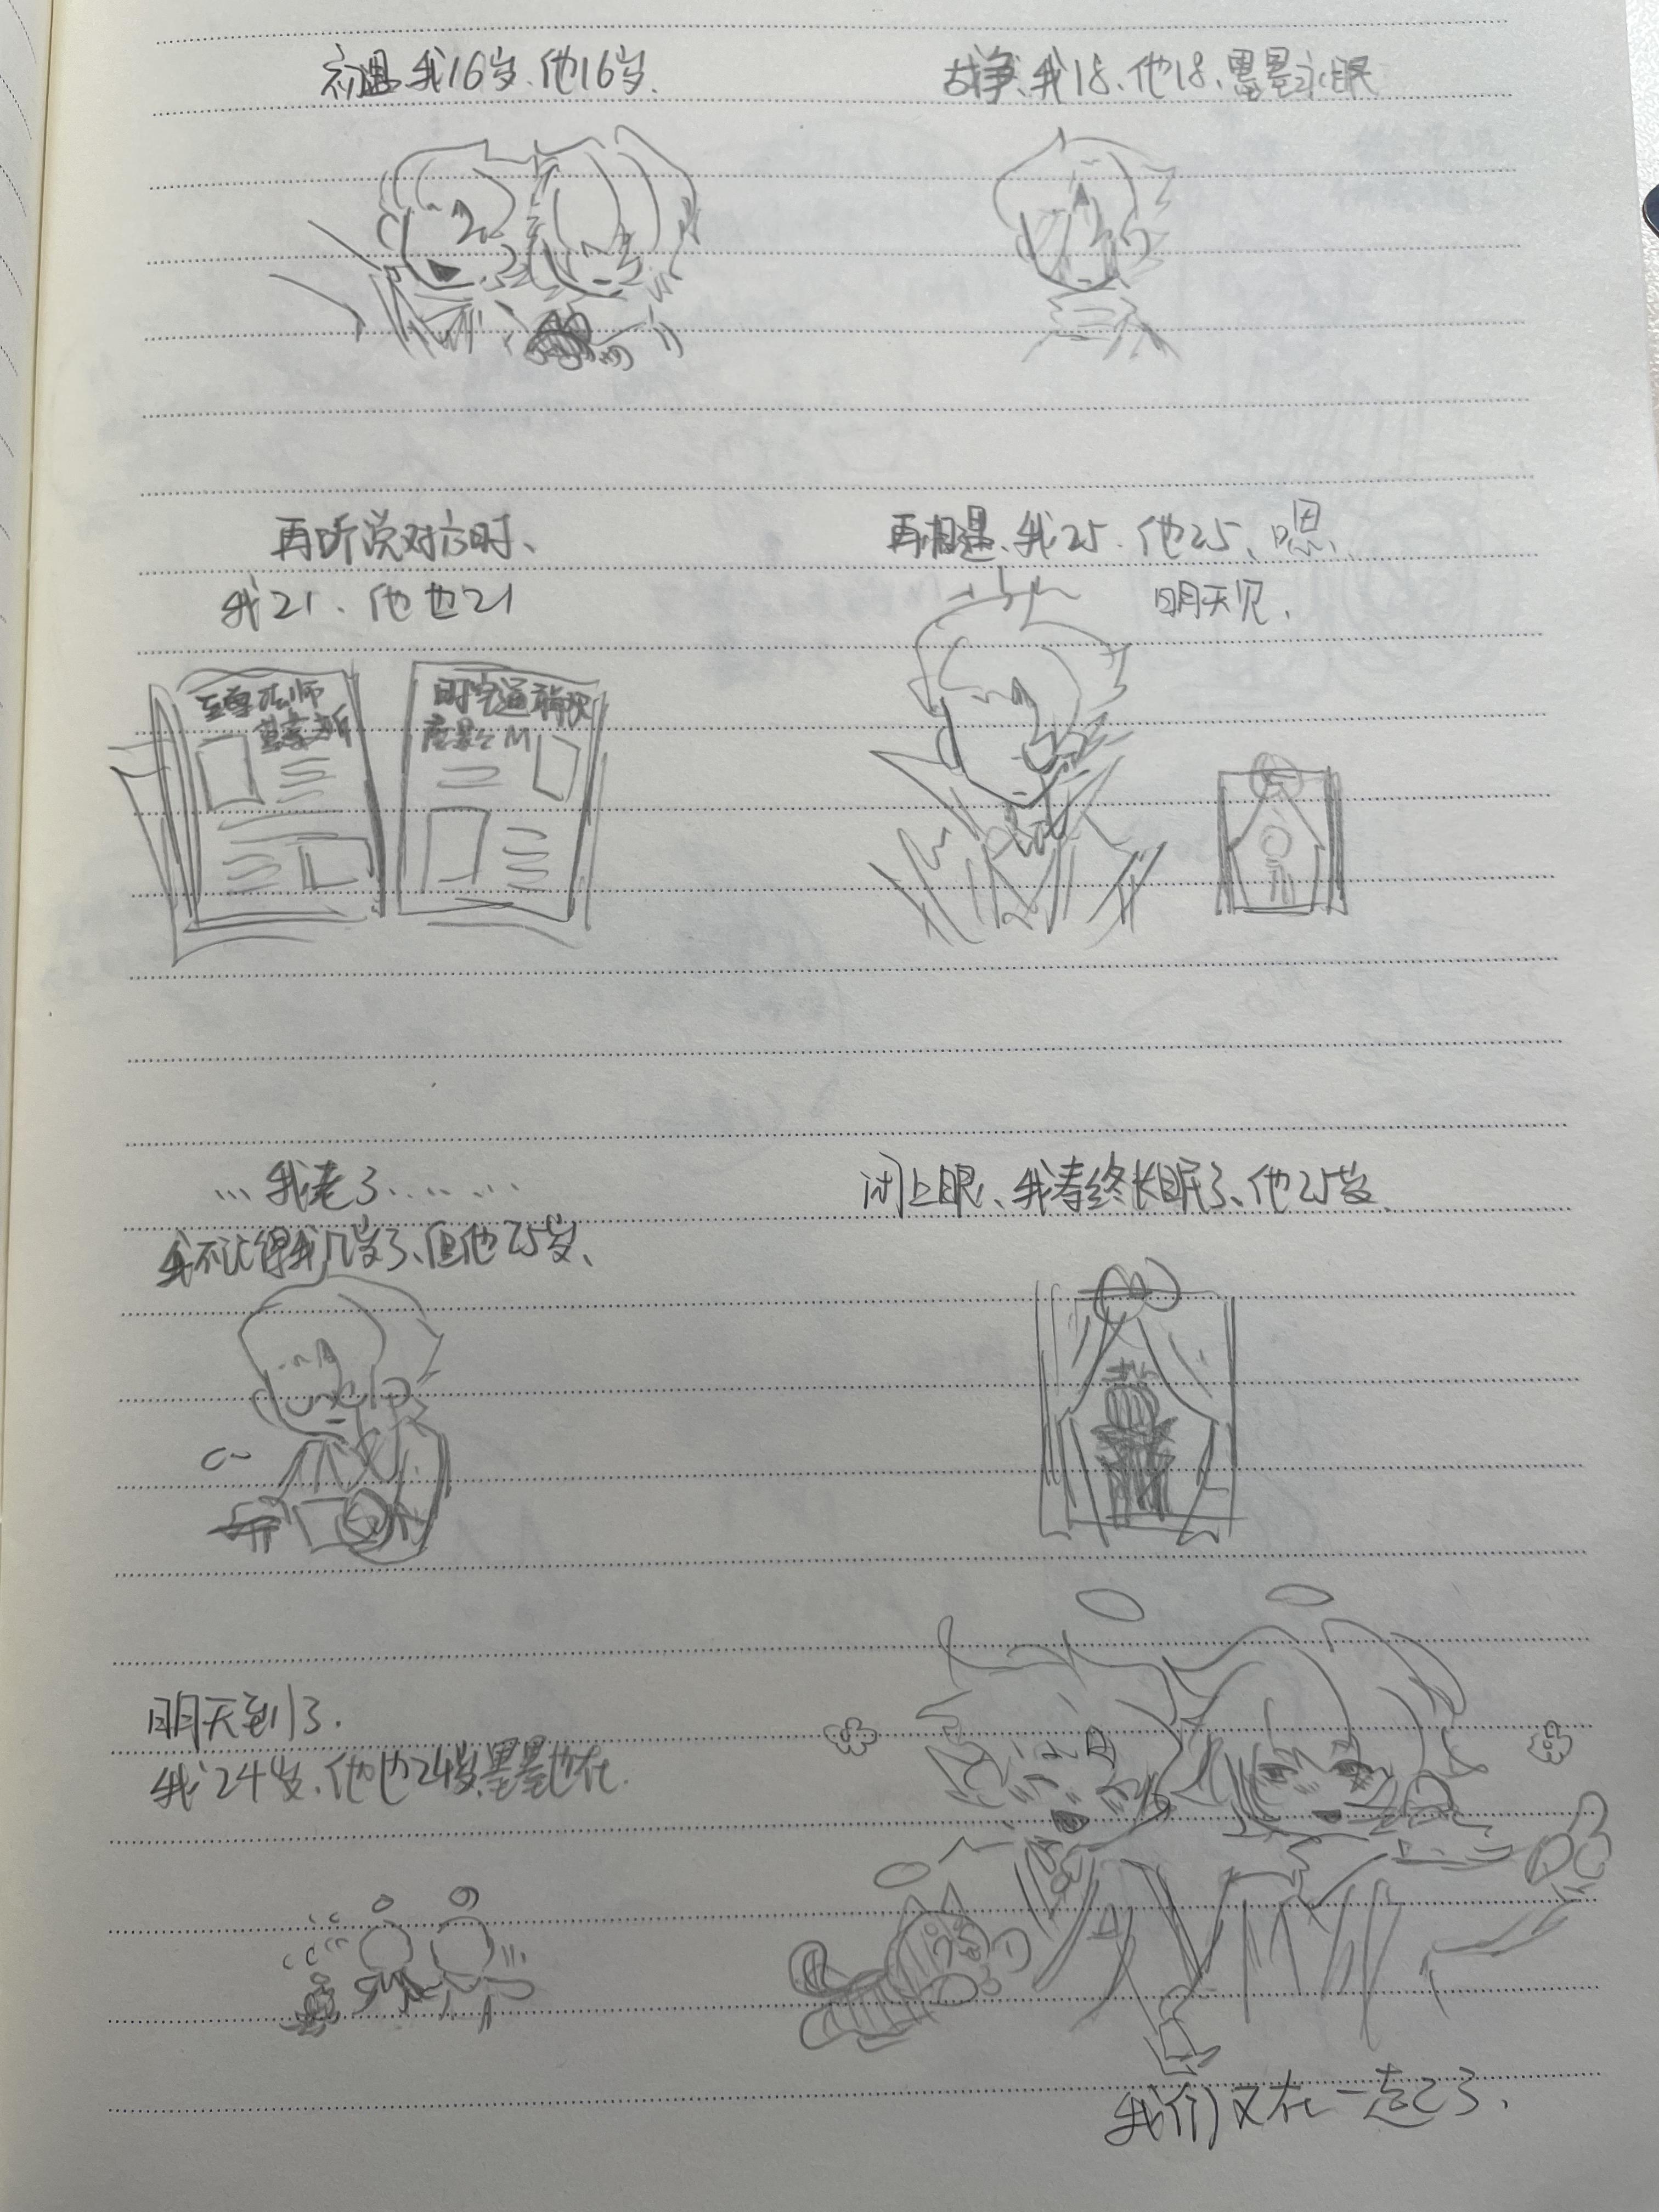 初遇、我16岁、他16岁、
战争、我18、他18、墨墨永眠
再听说对方时、
我21、他也21
再相遇、我25、他25、嗯、
明天见、
至尊法师
时空通称
…我老了……
我不记得我几岁了、但他25岁、
闭上眼、我寿终长眠了、他25岁、
明天到了、
我24岁、他也24岁、墨墨也在、
我们又在一起了、